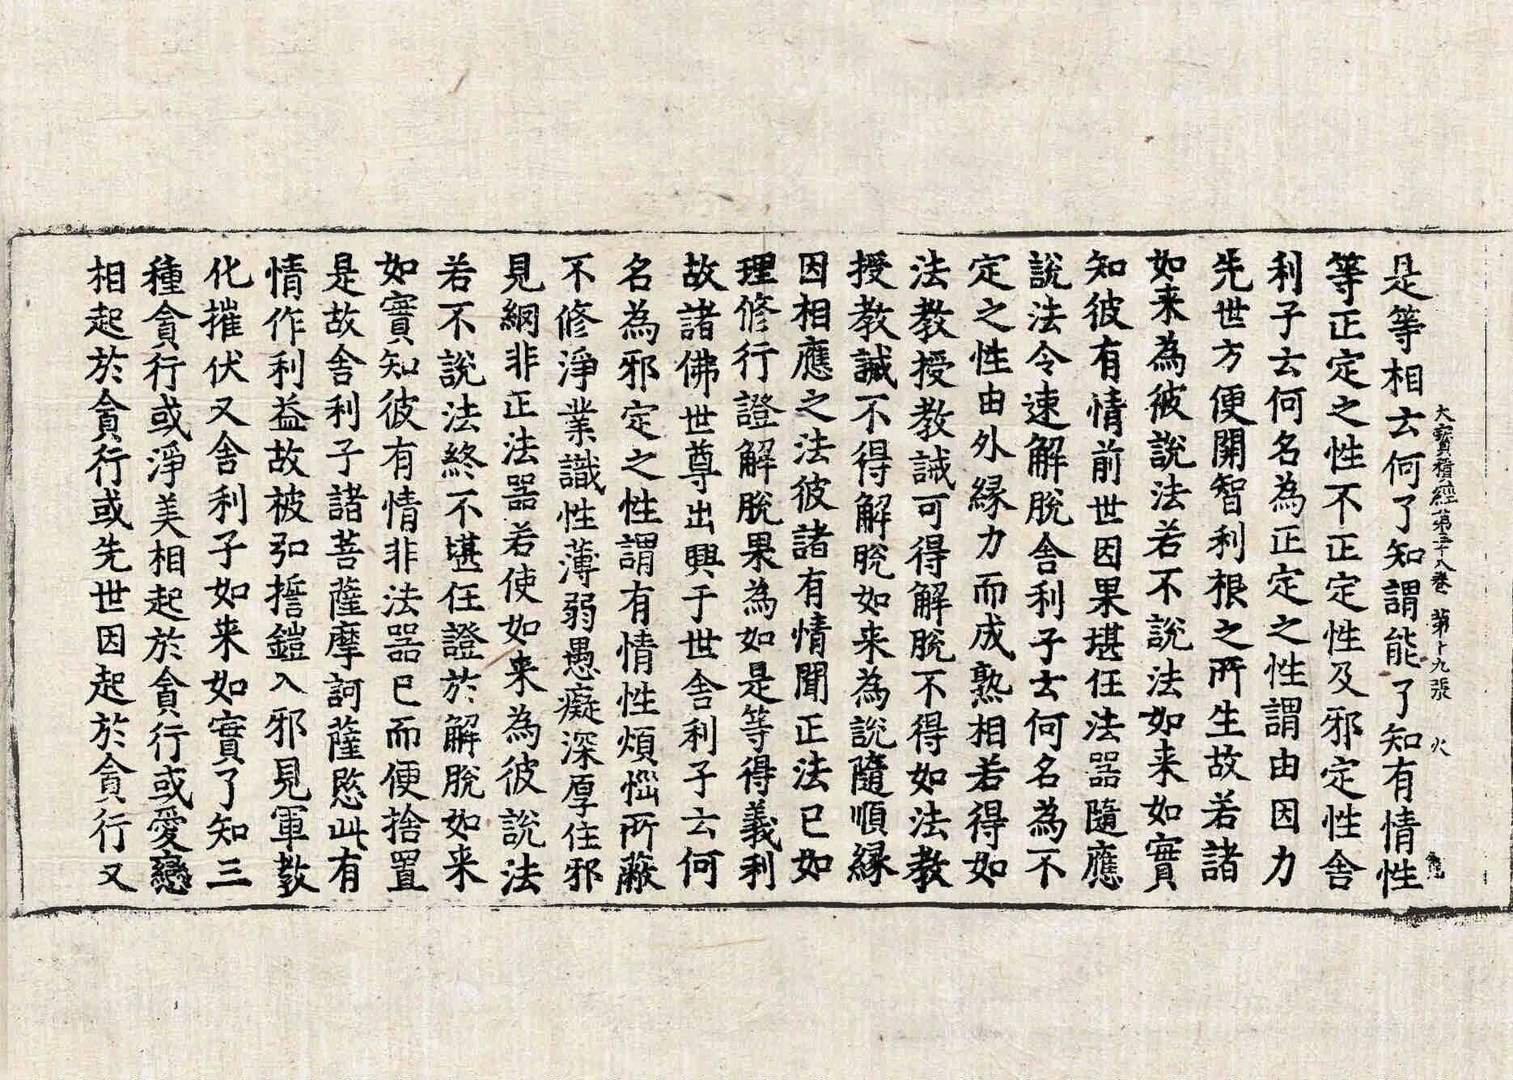 大寶積經第三十八卷 第十九張 火
是等相云何了知謂能了知有情性
等正定之性不正定性及邪定性舍
利子云何名為正定之性謂由因力
先世方便開智利根之所生故若諸
如来為彼說法若不說法如来如實
知彼有情前世因果堪任法器隨應
說法令速解脫舍利子云何名為不
定之性由外緣力而成熟相若得如
法教授教誡可得解脫不得如法教
授教誡不得解脫如来為說隨順緣
因相應之法彼諸有情聞正法已如
理修行證解脫果為如是等得義利
故諸佛世尊出興于世舍利子云何
名為邪定之性謂有情性煩惱所蔽
不修淨業識性薄弱愚癡深厚住邪
見網非正法器若使如来為彼說法
若不說法終不堪任證於解脫如来
如實知彼有情非法器已而便捨置
是故舍利子諸菩薩摩訶薩愍此有
情作利益故被弘誓鎧入邪見軍教
化摧伏又舍利子如来如實了知三
種貪行或淨美相起於貪行或愛戀
相起於貪行或先世因起於貪行又